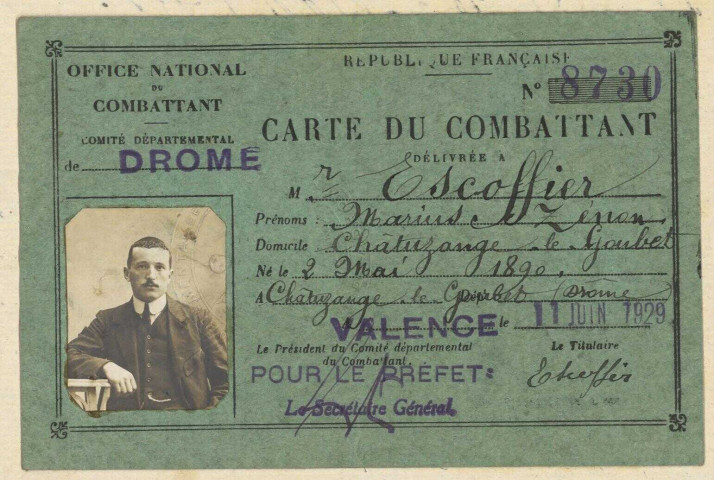 OFFICE NATIONAL
DU
COMBATTANT
COMITÉ DÉPARTEMENTAL
de DROME
RÉPUBLIQUE FRANÇAISE
N° 8730
CARTE DU COMBATTANT
DÉLIVRÉE A
Mr Escoffier
Prénoms : Marius Zénon
Domicile Châtuzange-le-Goubet
Né le 2 Mai 1890.
A Châtuzange-le-Goubet (Drome)
VALENCE le 11 JUIN 1929
Le Président du Comité départemental
du Combattant,
Le Titulaire
POUR LE PRÉFET:
Le Secrétaire Général,
Escoffier